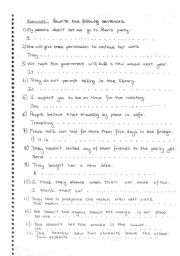 Exercises: Rewrite the following sentences.
1) My parents didn't let me go to Jane's party.
I
2) She will give them permission to continue her work.
They
3) We hope the government will build a new school next year.
It
4) They do not permit talking in the library.
5) I expect you to be on time for the meeting.
You
6) People believe that traveling by plane is safe.
Travelling
7) Fresh milk can last for more than five days in the fridge.
If
8) They haven't invited any of their friends to the party yet.
None
9) They bought her a new bike.
A
10) I think they should wash their car more often.
I think their car
11) They had to postpone the match until next week.
The match
12) No one
13) She doesn't let him smoke in the house.
He
14) The teacher saw two students leave the school.
Two students